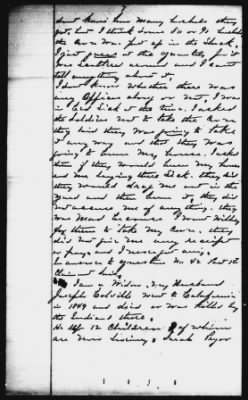 dont know how many bushels they
got, but I think some 80 or 90 bushels
the Corn was put up in the Shuck.
I just guess at the quantity for it
was scattered around and I cant
tell anything about it.
I dont know whether there was
any Officer along or not, I was
in bed Sick at the time. I asked
the Soldiers not to take the Corn
they said they was going to take
it any way and that they was
going to burn my house. I asked
them if they would burn my house
and me laying there Sick. they said
they would drag me out in the
yard and then burn it, they did
not accuse me of any thing. they
was Mad because I wont willing
for them to take my Corn. they
did not give me any receipt
or pay, and I never got any.
In answer to question No 42
Claimant Says
I am a Widow. My Husband
Joseph went to California
in 1849 and died or was killed by
the Indians there.
He left 12 Children of whom
are Now living, Sarah Pryor